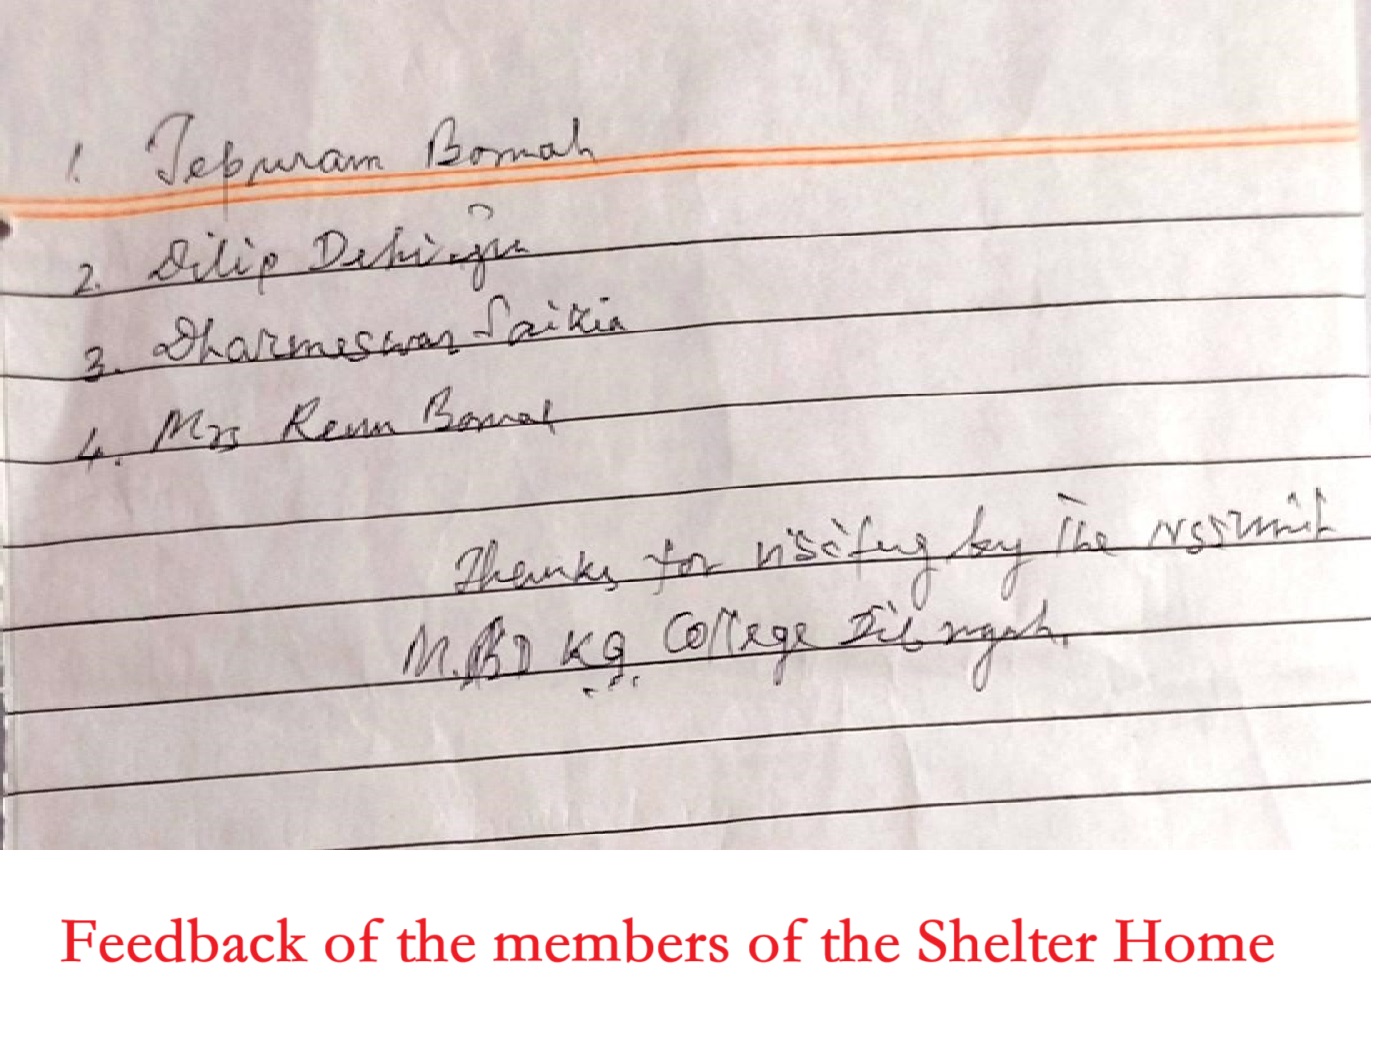 1. Tepuram Borah
2. Dilip Dehingia
3. Dharmeswar Saikia
4. Mrs Renu Borah
Thanks for visiting by the NSS unit
M.D KG College Dibrugarh.
Feedback of the members of the Shelter Home